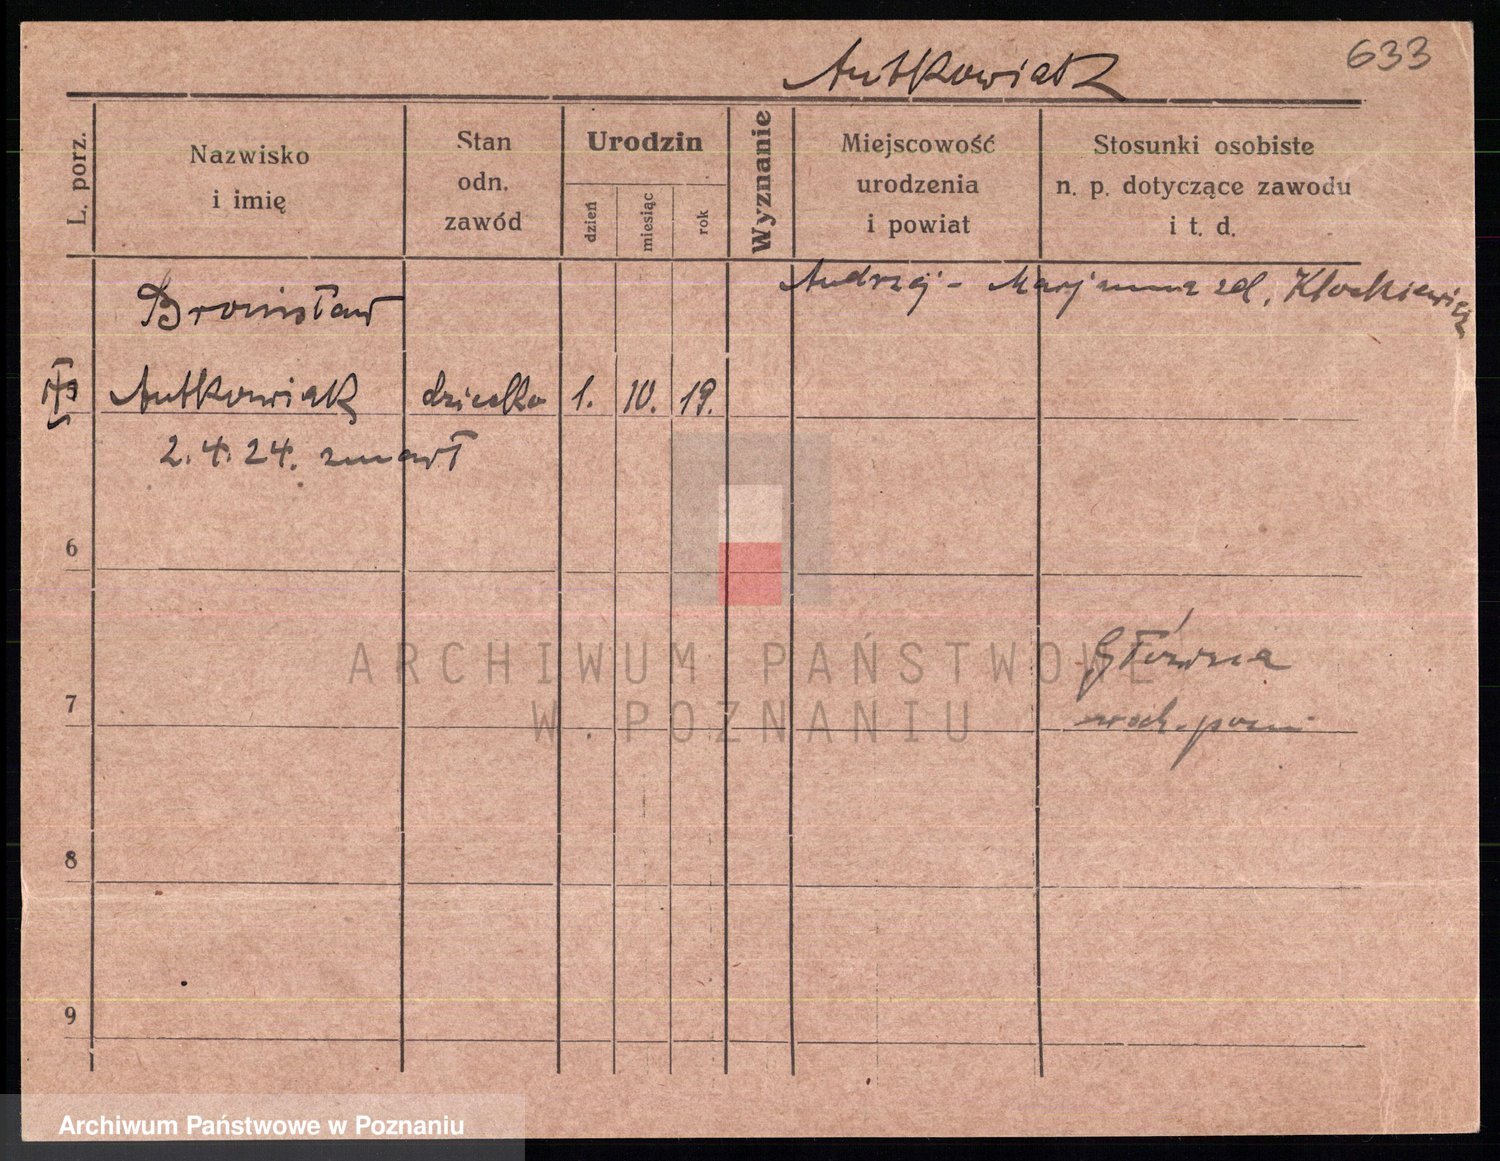 633
Antkowiak
L. porz.
Nazwisko
i imię
Stan
odn.
zawód
Urodzin
dzień
miesiąc
rok
Wyznanie
Miejscowość
urodzenia
i powiat
Stosunki osobiste
n. p. dotyczące zawodu
i t. d.
Andrzej - Marjanna zd. Kłockiewicz
Bronisław
Antkowiak dziecko 1. 10. 19.
2. 4. 24. zmarł
6
Główna
7
8
9
ARCHIWUM PAŃSTWOWE
W POZNANIU
Archiwum Państwowe w Poznaniu